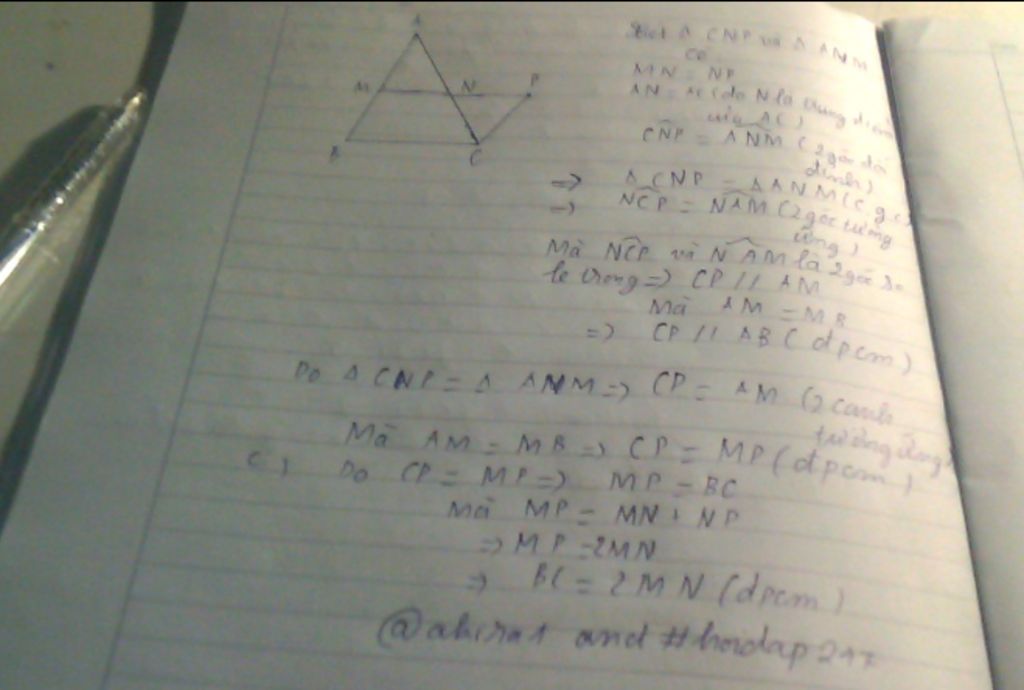 A
M N P
B C
Xét Δ CNP và Δ ANM
có
MN = NP
AN = (do N là trung điểm
của AC)
CNP = ANM (2 góc đối
đỉnh)
=> Δ CNP = Δ ANM (c.g.c)
=> NCP = NAM (2 góc tương
ứng)
Mà NCP và NAM là 2 góc so
le trong => CP // AM
Mà AM = MB
=> CP // AB (đpcm)
Do Δ CNP = Δ ANM => CP = AM (2 cạnh
tương ứng)
Mà AM = MB => CP = MP (đpcm)
c, Do CP = MP => MP = BC
Mà MP = MN + NP
=> MP = 2MN
=> BC = 2MN (đpcm)
and #hoidap247